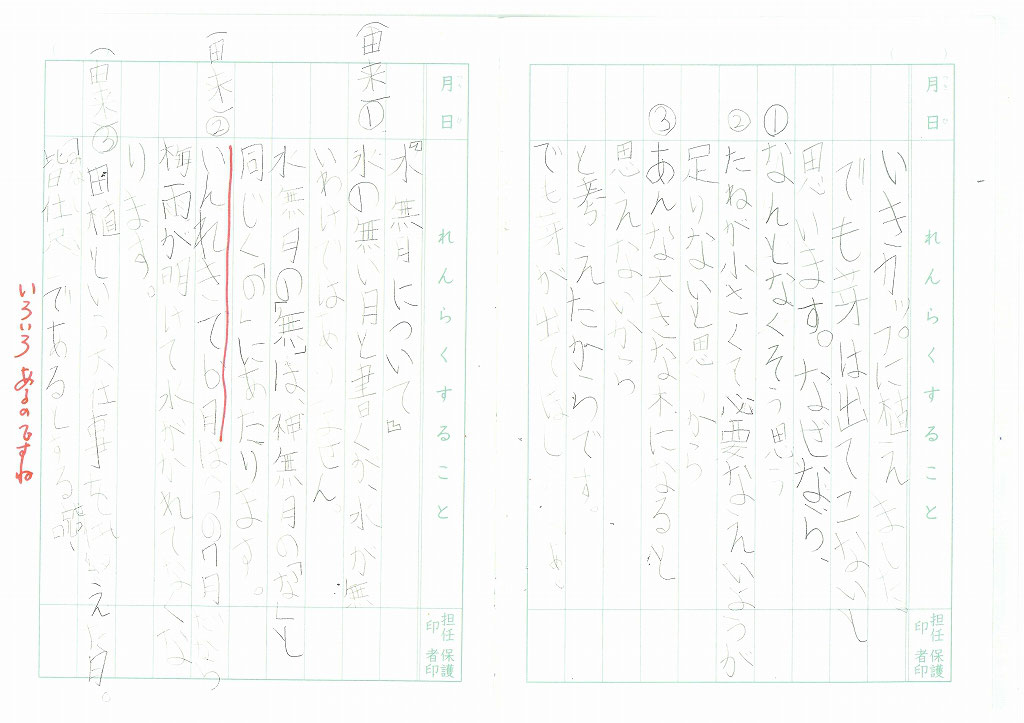 月 日
れんらくすること
担任印 保護者印
いきカップに植えました。
でも芽は出てこないと
思います。なぜなら、
①なんとなくそう思う
②たねが小さくて必要なえいようが
足りないと思うから
③あんな大きな木になると
思えないから
と考えたからです。
でも芽が出てほし
月 日
れんらくすること
担任印 保護者印
『水無月について』
(由来①)水の無い月と書くが、水が無
いわけではありません。
水無月の「無」は、神無月の「な」と
同じく「の」にあたります。
(由来②)いんれきで6月は 7月
梅雨が明けて水がかれてなくな
ります。
(由来③)田植という大仕事を 終えた月。
皆仕尽 であるとする説、
いろいろあるのですね